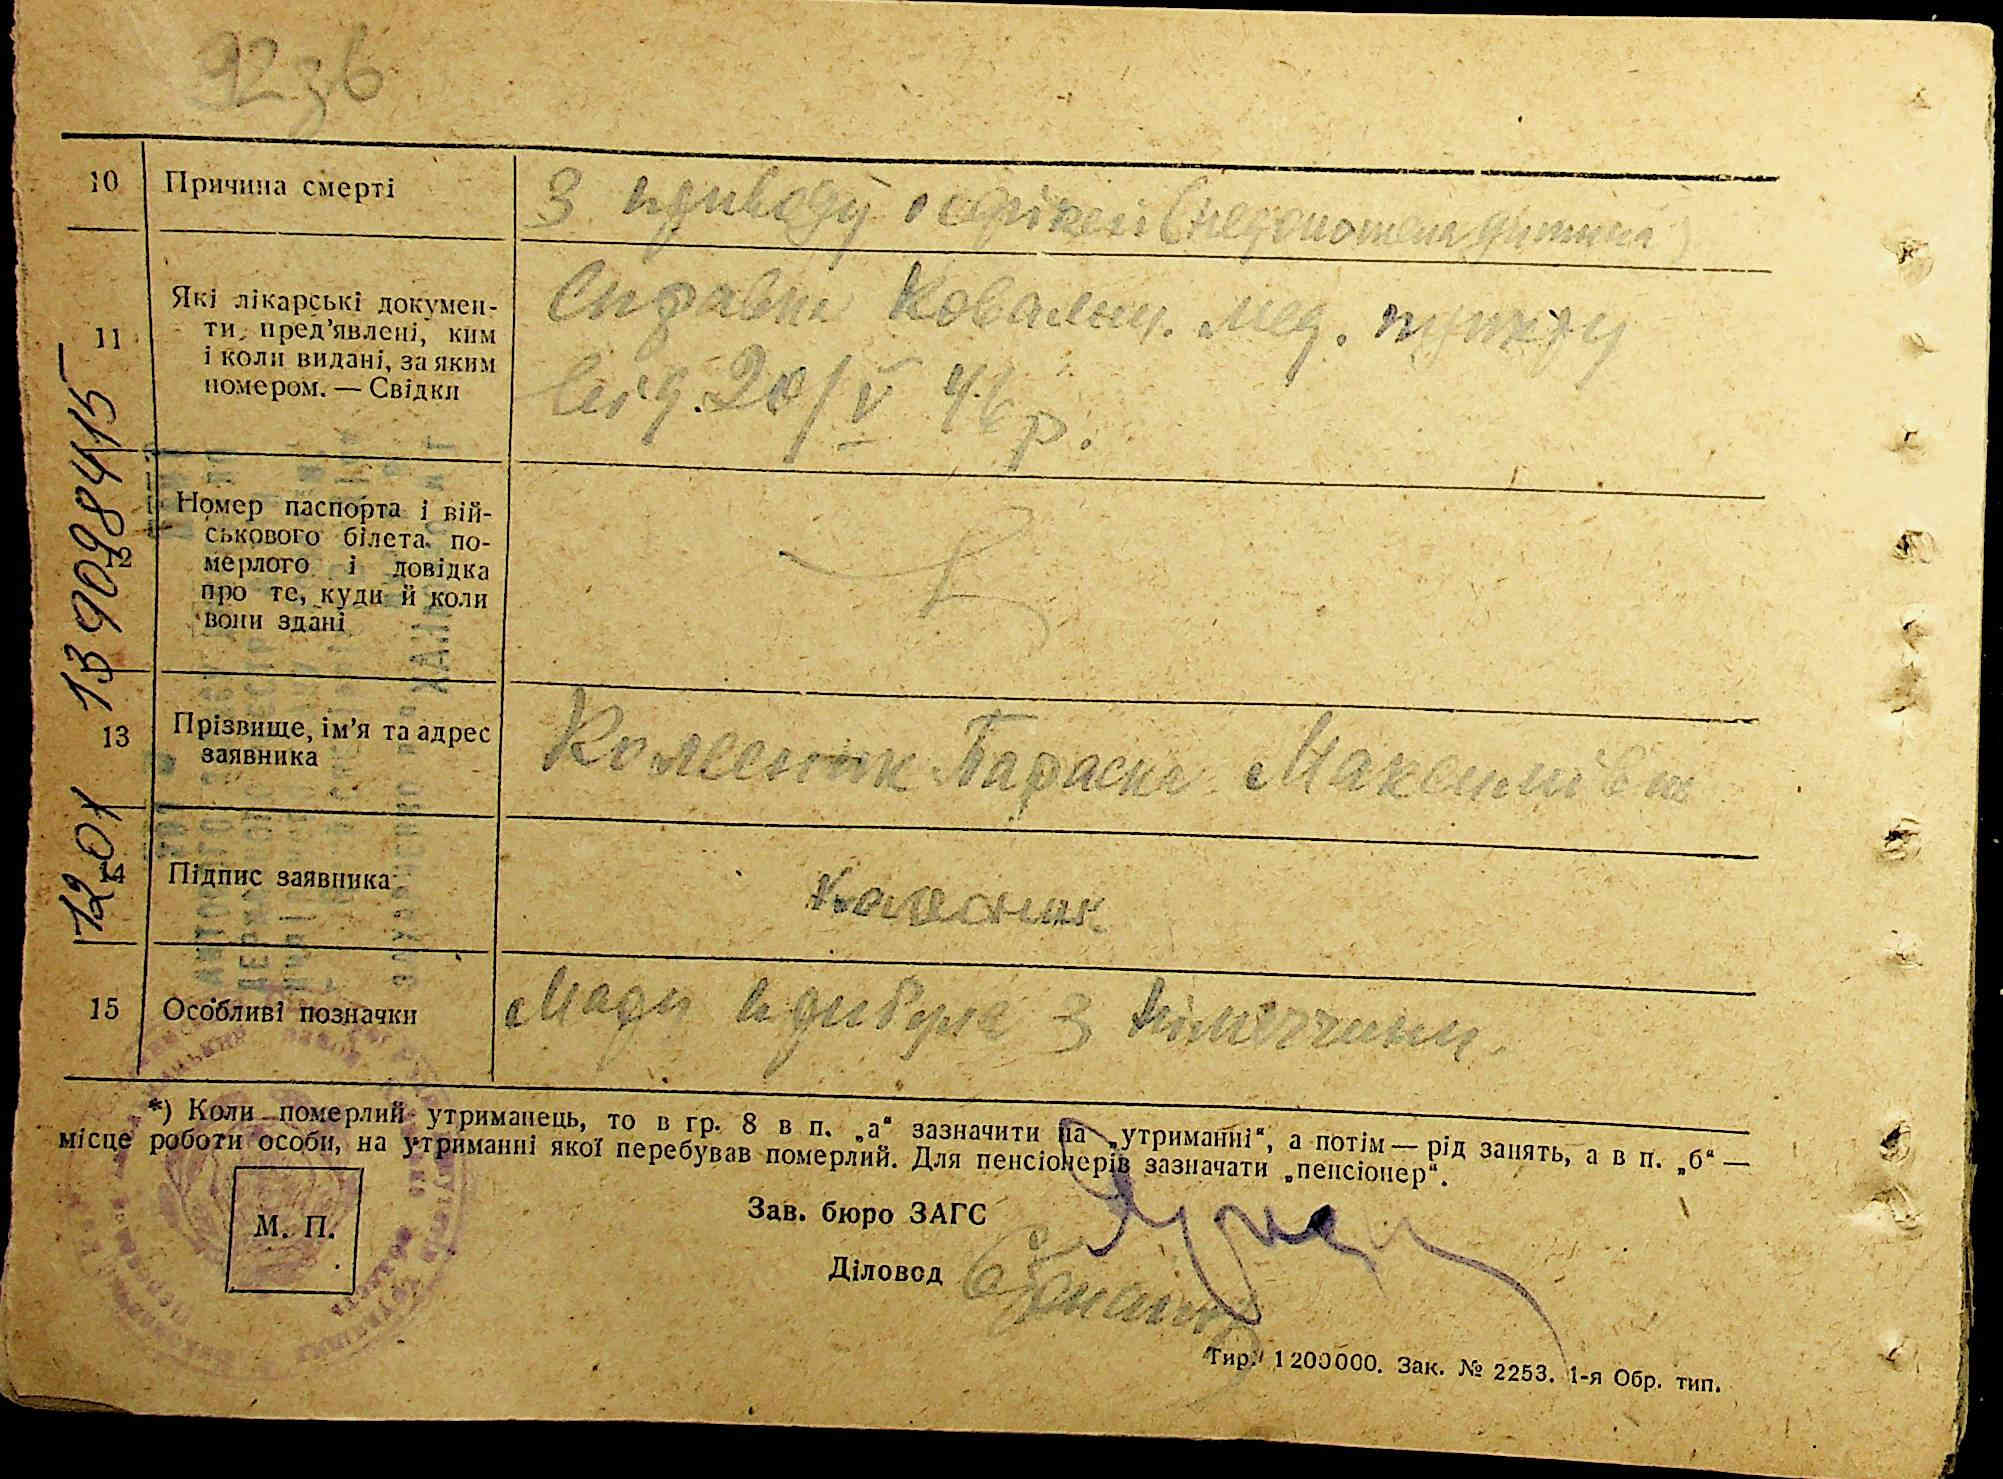 92 зв
10 Причина смерті З приводу (недоношена дитина)
11 Які лікарські докумен-
ти, пред'явлені, ким
і коли видані, за яким
номером. — Свідки
Справка Ковалиц. мед. пункту
від. 20/V 46 р.
12 Номер паспорта і вій-
ськового білета по-
мерлого і довідка
про те, куди й коли
вони здані
13 Прізвище, ім'я та адрес
заявника
Колесник Параска Максимівна
14 Підпис заявника Колесник
15 Особливі позначки Мати прибула з Німеччини.
1201 1390984415
*) Коли померлий утриманець, то в гр. 8 в п. „а“ зазначити на „утриманні“, а потім — рід занять, а в п. „б“ —
місце роботи особи, на утриманні якої перебував померлий. Для пенсіонерів зазначати „пенсіонер“.
М. П.
Зав. бюро ЗАГС
Діловод
Тир. 1200000. Зак. № 2253. 1-я Обр. тип.